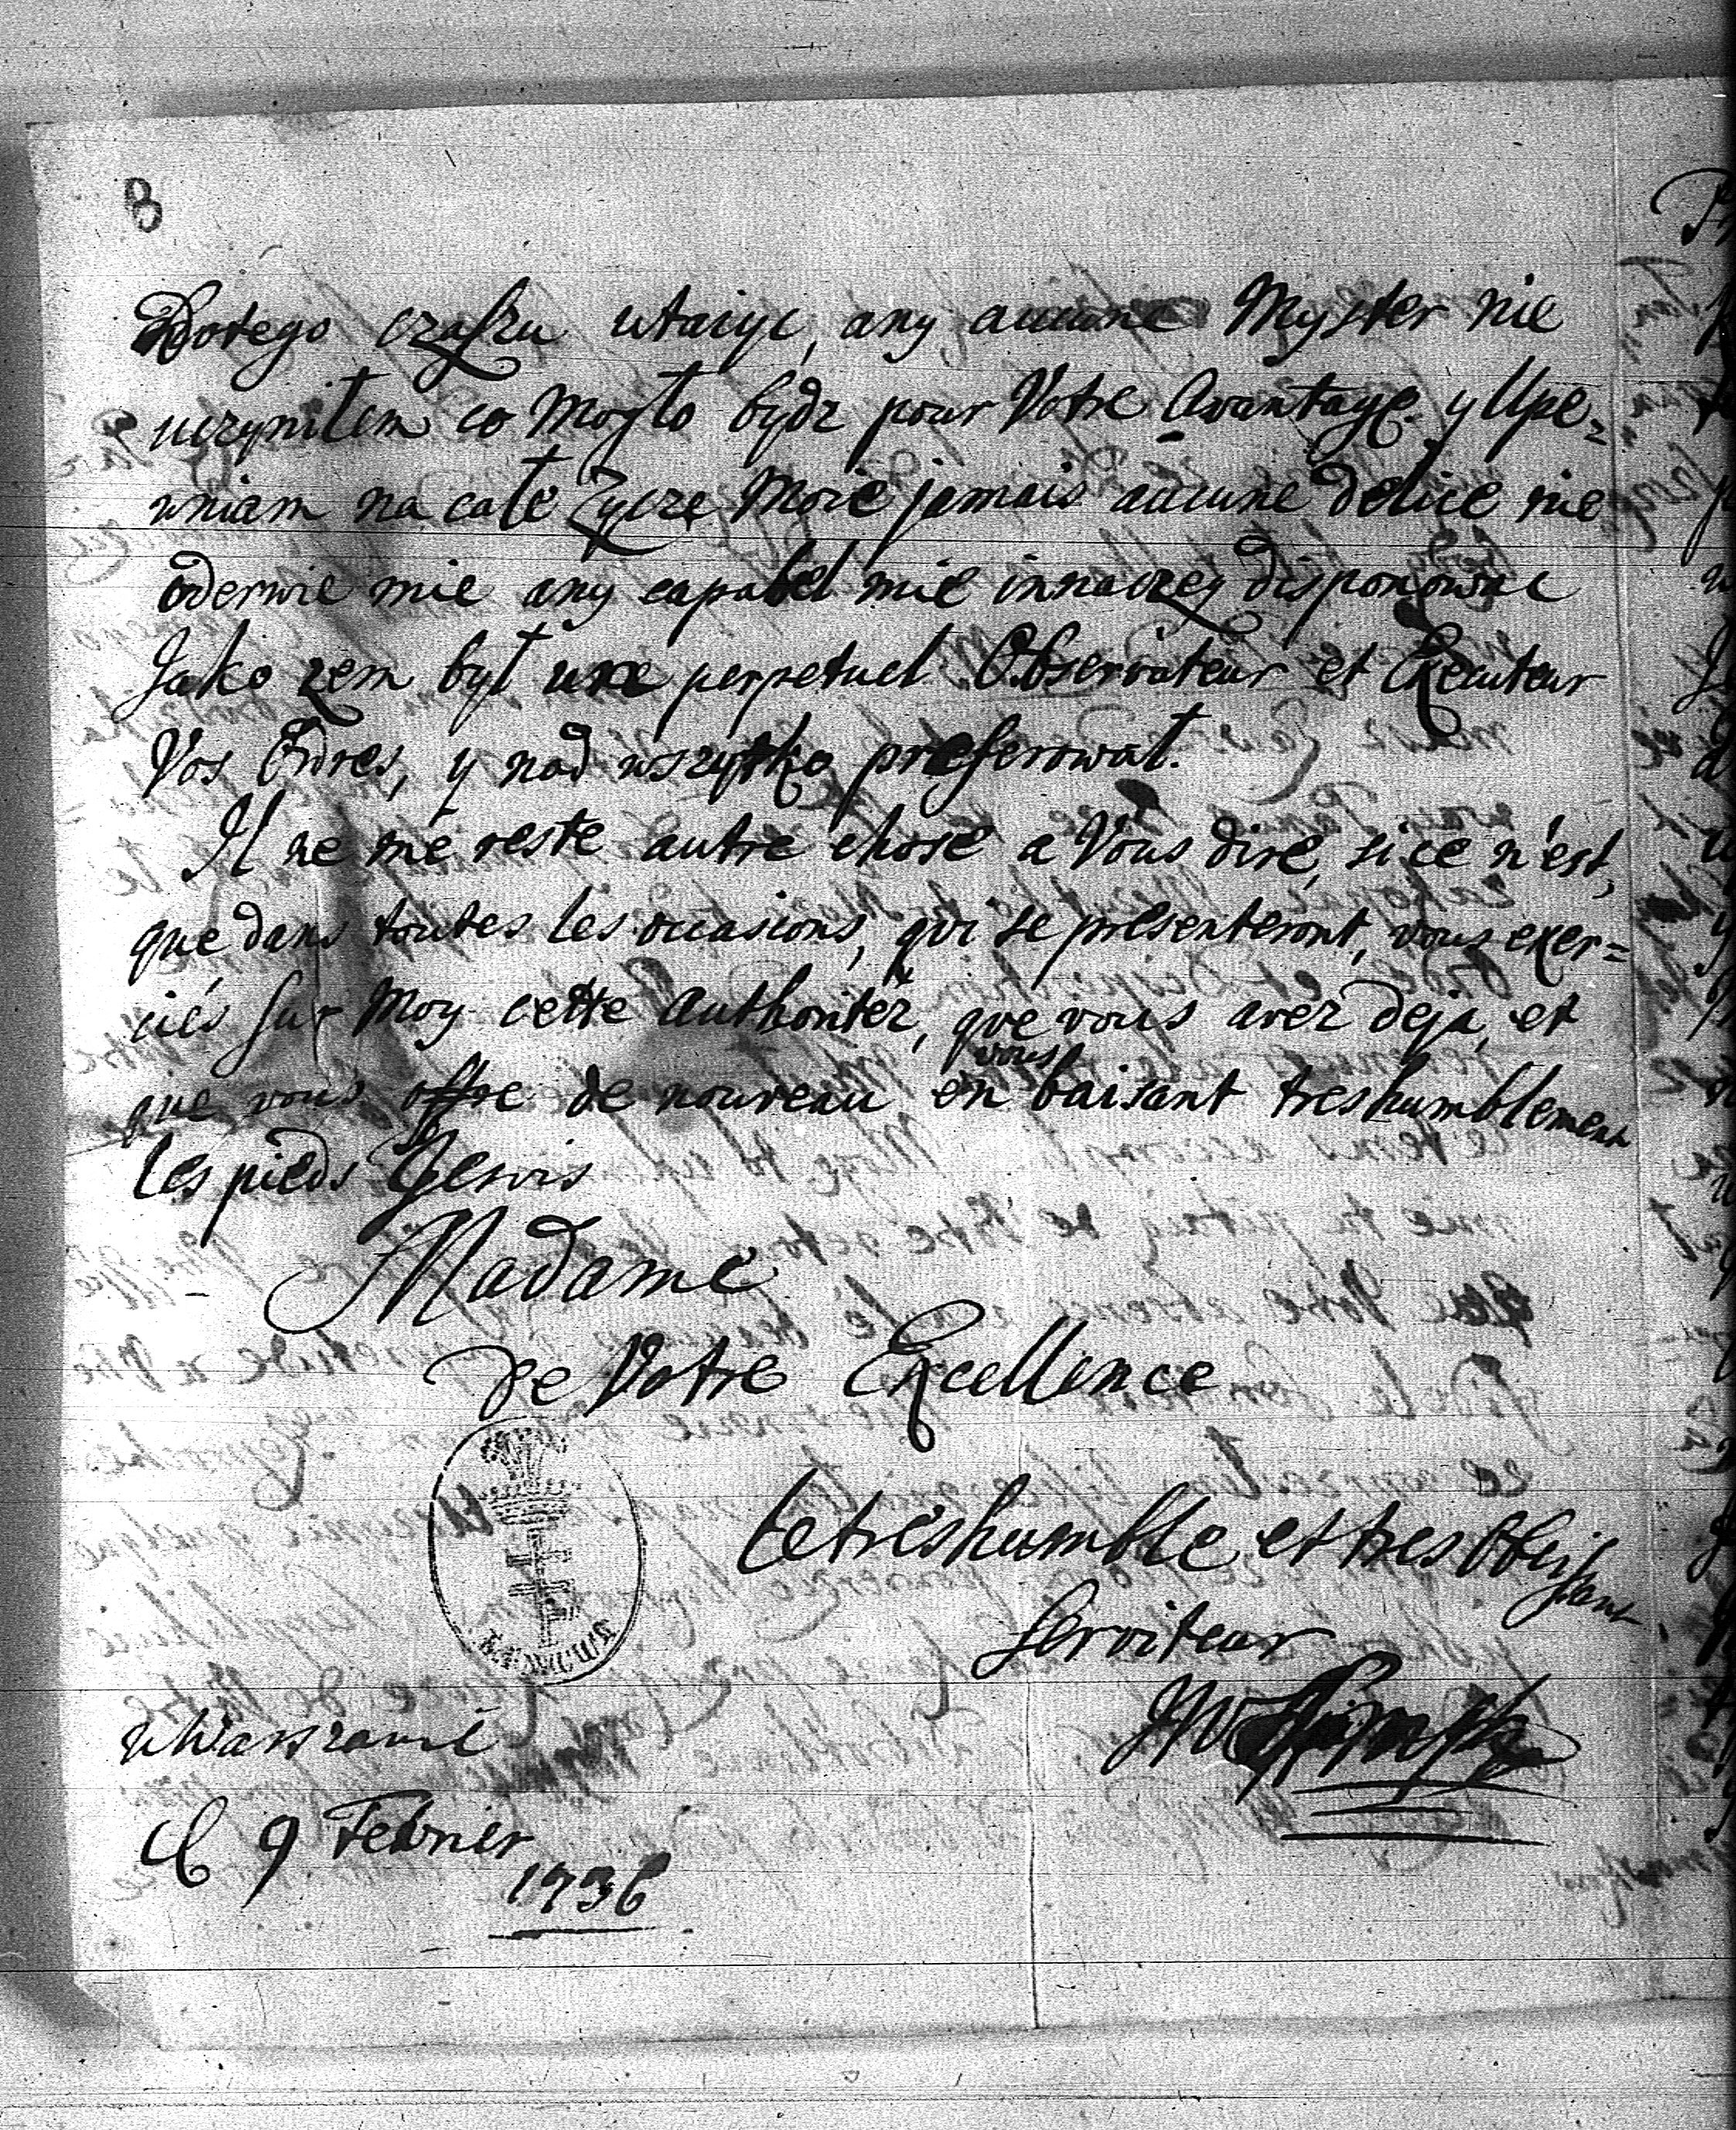 8
Dotego czaszu utaiyc, any aucune Myster nie
uczyniłem co Mogło bydz pour Votre Avantage y Upe=
wniam na całe Zycze Moie jamais aucune delice nie
oderwie mie any capabel mie innaczey disponowac
Jako zem był une perpetuel Observateur et Executeur
Vos Ordres, y nad wszytko preferował.
Il ne me reste autre chose a Vous dire, si ce n'est,
que dans toutes les occasions, qvi se presenteront, vous exer=
ciés sur Moy cette Authoritéz, qve vous avez deja, et
que vous offre de nouveau en vous baisant treshumblement
les pieds Gesvis
Madame
de Votre Excellence
le tréshumble et tres Obeissant
Serviteur
w Warszawie
d 9 Februier
1736